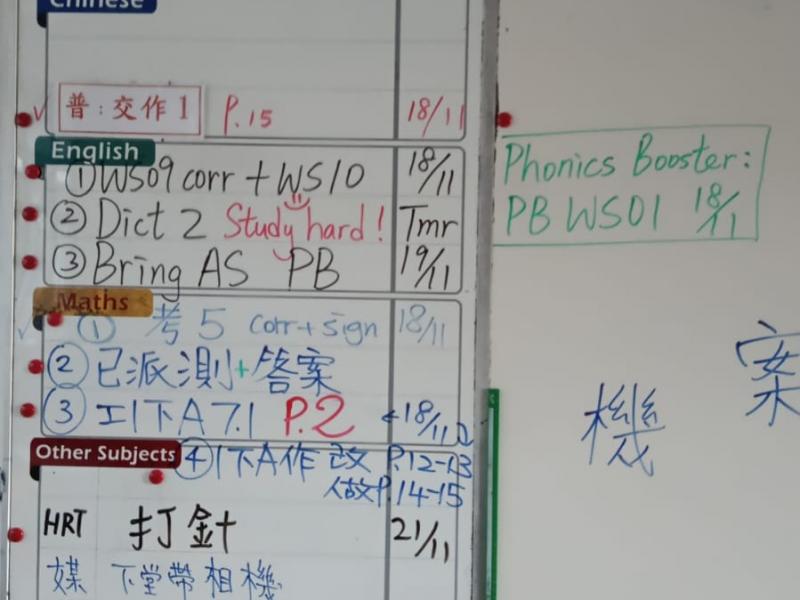 Chinese
普:交作1 P.15 18/11
English
①WS09 corr + WS10 18/11
② Dict 2 Study hard! Tmr
③ Bring AS PB 19/11
Maths
① 考 5 corr + sign 18/11
② 已派測+答案
③ 工1下A7.1 P.2 18/11
Other Subjects
④1下A作 改 P.12-13
做P.14-15
HRT 打針 21/11
媒 下堂帶相機
Phonics Booster:
PB WS01 18/11
案
機